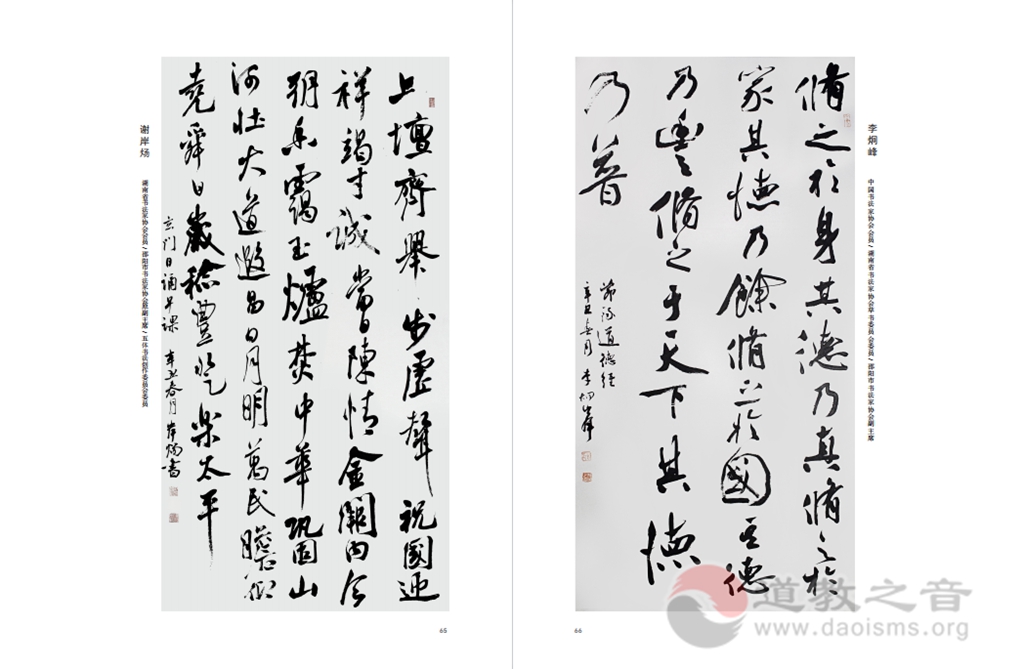 谢岸炀
湖南省书法家协会会员/邵阳市书法家协会副主席/五体书法创作委员会委员
上壇齊舉步虛聲祝國迎
祥竭寸誠當日陳情金闕內今
朝香靄玉爐焚中華鞏固山
河壯大道遐昌日月明萬民瞻仰
堯舜日歲稔豐登樂太平
玄门日诵早课 辛丑春月 岸炀書
65
李炯峰
中国书法家协会会员/湖南省书法家协会草书委员会委员/邵阳市书法家协会副主席
脩之於身其德乃真脩之於
家其德乃餘脩之於國其德
乃豐脩之于天下其德
乃普
節錄道德经
辛丑春月 李炯峰
66
道教之音
www.daoisms.org